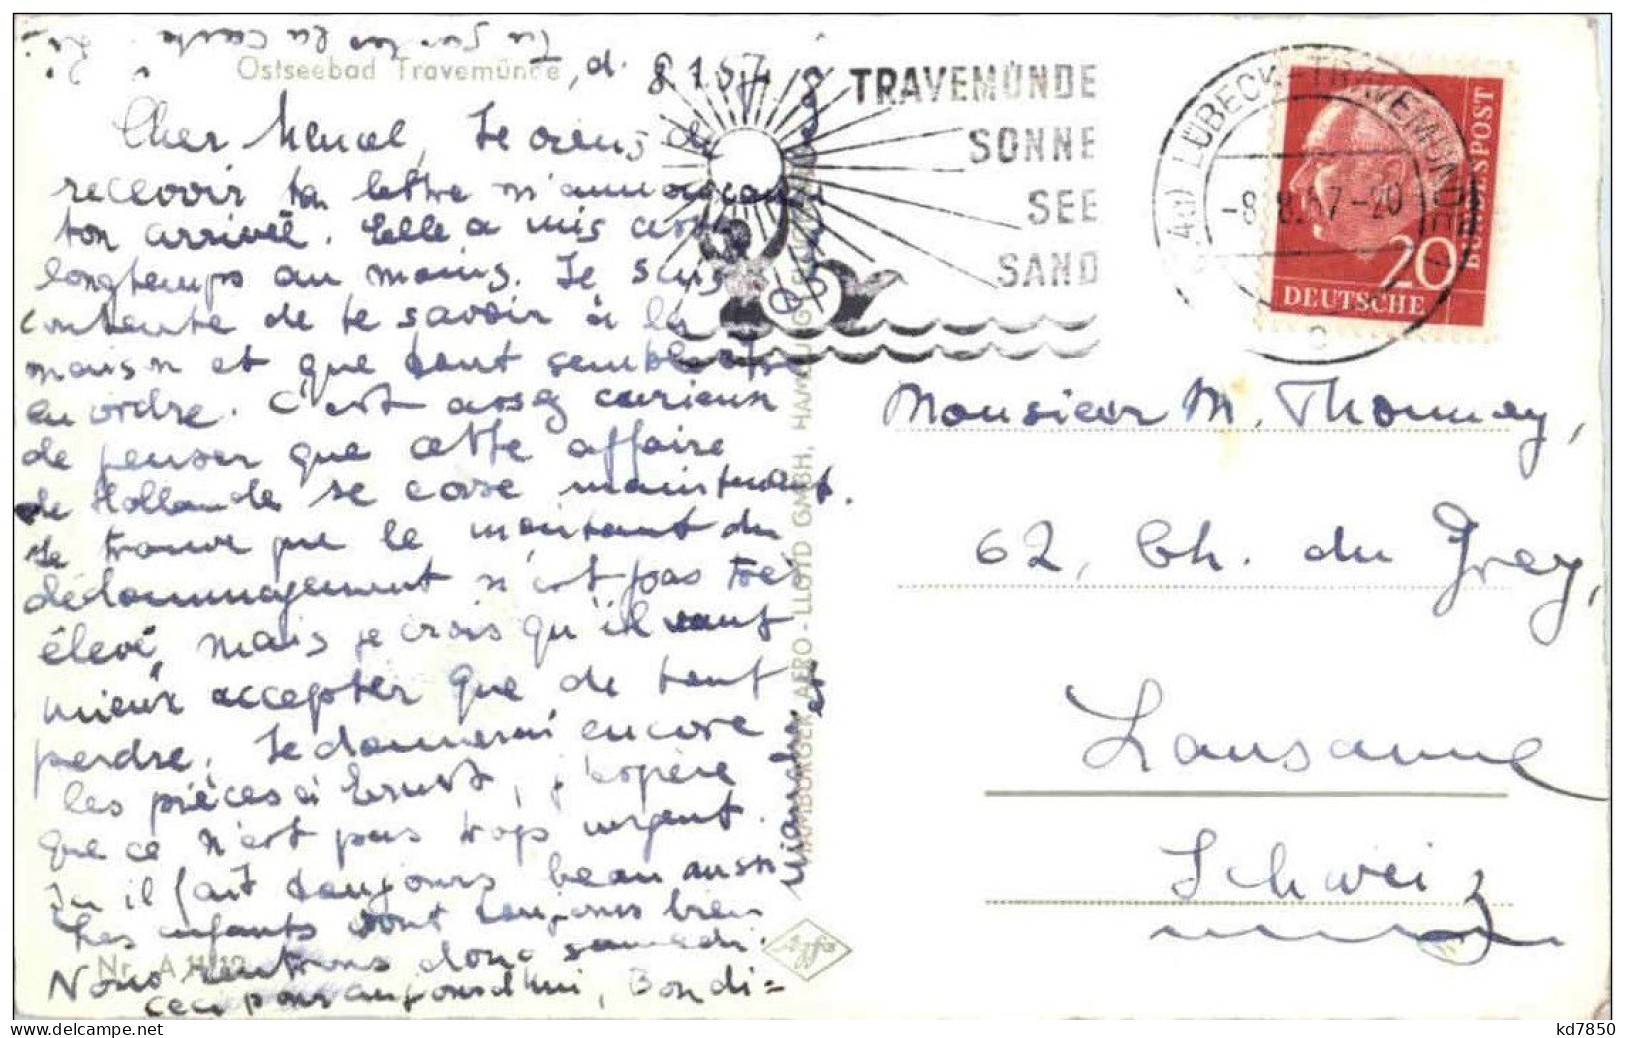 Ostseebad Travemünde, d. 8.8.57
Cher Marcel, Je viens de
recevoir ta lettre m'annonçant
ton arrivée. Elle a mis
longtemps au moins. Je suis
contente de te savoir à la
maison et que tout semble être
en ordre. C'est assez curieux
de penser que cette affaire
de Hollande se case maintenant.
Je trouve que le montant du
dédommagement n'est pas très
élevé, mais je crois qu'il vaut
mieux accepter que de tout
perdre. Je donnerai encore
les pièces à Ernst, j'espère
que ce n'est pas trop urgent.
Ici il fait toujours beau aussi
Les enfants vont toujours bien
Nous rentrons donc samedi.
ceci pour aujourd'hui, Bon di=
manche et
Nr. A 11/12
HAMBURGER AERO-LLOYD GMBH, HAMBURG
Agfa
TRAVEMÜNDE
SONNE
SEE
SAND
LÜBECK-TRAVEMÜNDE
-8.8.57-20
20
DEUTSCHE
BUNDESPOST
Monsieur M. Thonney,
62, Ch. du Grey,
Lausanne
Schweiz
kd7850